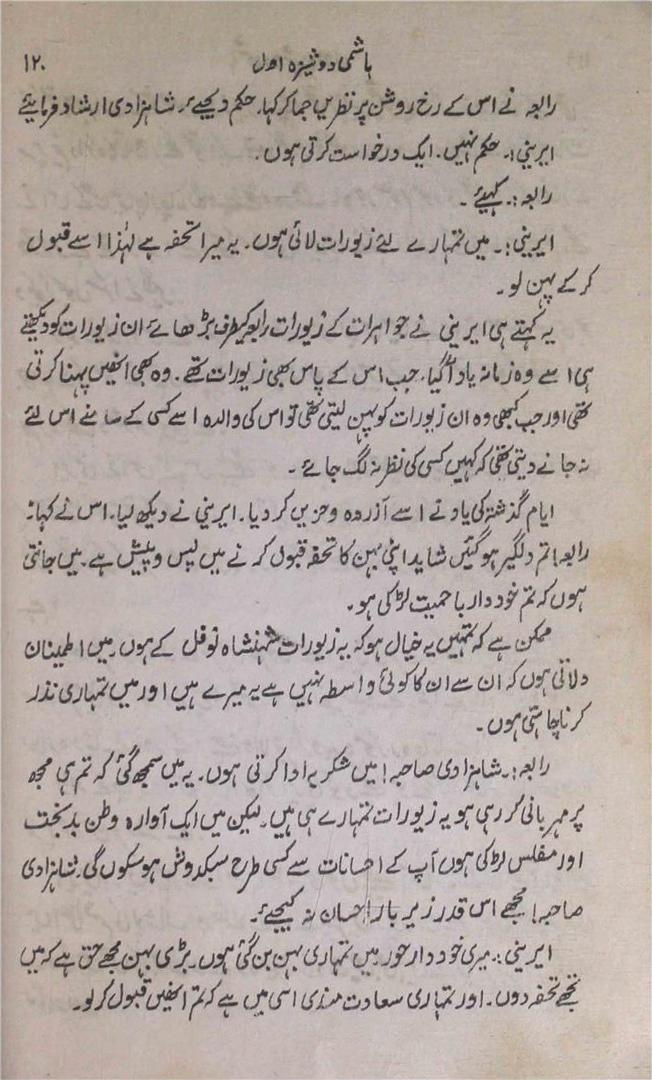 ہاشمی دوشیزہ اول ۱۲۰
رابعہ نے اس کے رخ روشن پر نظریں جما کر کہا۔ حکم دیجیے شاہزادی ارشاد فرمایئے
ایرینی:۔ حکم نہیں۔ ایک درخواست کرتی ہوں۔
رابعہ:۔ کہیئے۔
ایرینی:۔ میں تمہارے لئے زیورات لائی ہوں۔ یہ میرا تحفہ ہے لہٰذا اسے قبول
کر کے پہن لو۔
یہ کہتے ہی ایرینی نے جواہرات کے زیورات رابعہ کیطرف بڑھائے ان زیورات کو دیکھتے
ہی اسے وہ زمانہ یاد آ گیا۔ جب اس کے پاس بھی زیورات تھے۔ وہ بھی انھیں پہنا کرتی
تھی اور جب کبھی وہ ان زیورات کو پہن لیتی تھی تو اس کی والدہ اسے کسی کے سامنے اس لئے
نہ جانے دیتی تھی کہ کہیں کسی کی نظر نہ لگ جائے۔
ایام گذشتہ کی یاد نے اسے آزردہ و حزیں کر دیا۔ ایرینی نے دیکھ لیا۔ اس نے کہا:
رابعہ! تم دلگیر ہو گئیں شاید اپنی بہن کا تحفہ قبول کرنے میں پس و پیش ہے۔ میں جانتی
ہوں کہ تم خود دار با حمیت لڑکی ہو۔
ممکن ہے کہ تمہیں یہ خیال ہو کہ یہ زیورات شہنشاہ نوفل کے ہوں۔ میں اطمینان
دلاتی ہوں کہ ان سے ان کا کوئی واسطہ نہیں ہے یہ میرے ہیں اور میں تمہاری نذر
کرنا چاہتی ہوں۔
رابعہ:۔ شاہزادی صاحبہ! میں شکریہ ادا کرتی ہوں۔ یہ میں سمجھ گئی کہ تم ہی مجھ
پر مہربانی کر رہی ہو یہ زیورات تمہارے ہی ہیں۔ لیکن میں ایک آوارہ وطن بدبخت
اور مفلس لڑکی ہوں آپ کے احسانات سے کسی طرح سبکدوش ہو سکوں گی۔ شاہزادی
صاحبہ! مجھے اس قدر زیر بار احسان نہ کیجیے۔
ایرینی:۔ میری خود دار حور میں تمہاری بہن بن گئی ہوں۔ بڑی بہن مجھے حق ہے کہ میں
تجھے تحفہ دوں۔ اور تمہاری سعادت مندی اسی میں ہے کہ تم انھیں قبول کر لو۔